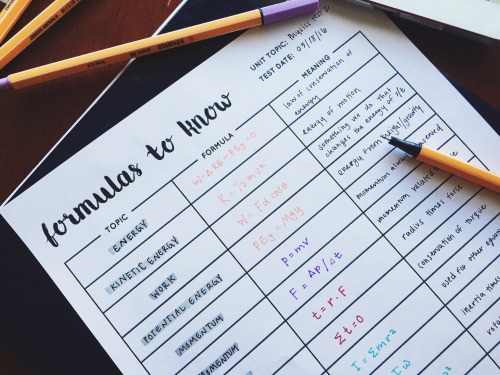 UNIT TOPIC: Physics Test 2
TEST DATE: 03/18/16
formulas to know
TOPIC
FORMULA
MEANING
ENERGY
law of conservation of
energy
KINETIC ENERGY
K = ½mv²
energy of motion
WORK
W = Fd cosθ
something we do that
changes the energy of
POTENTIAL ENERGY
PEg = Mgy
energy from height/gravity
MOMENTUM
p = mv
momentum always
MOMENTUM
F = Δp/Δt
momentum related
t = r·F
radius times force
Σt=0
conservation of torque
I = Σmr²
used for other
inertia times